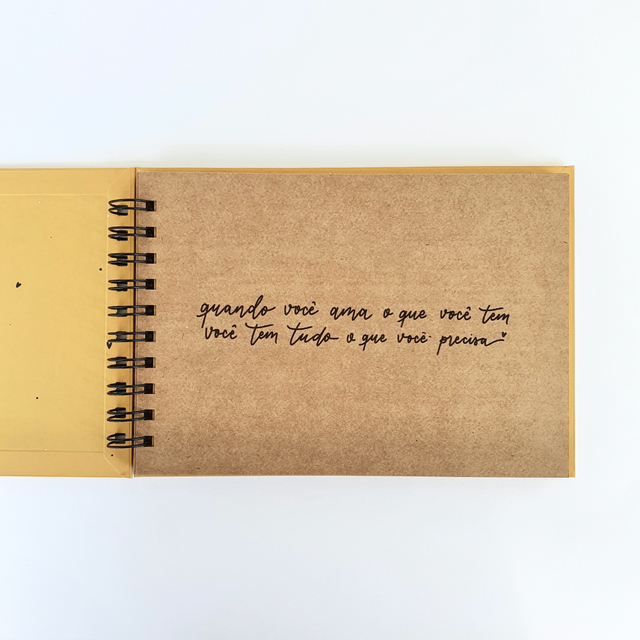 quando você ama o que você tem
você tem tudo o que você precisa